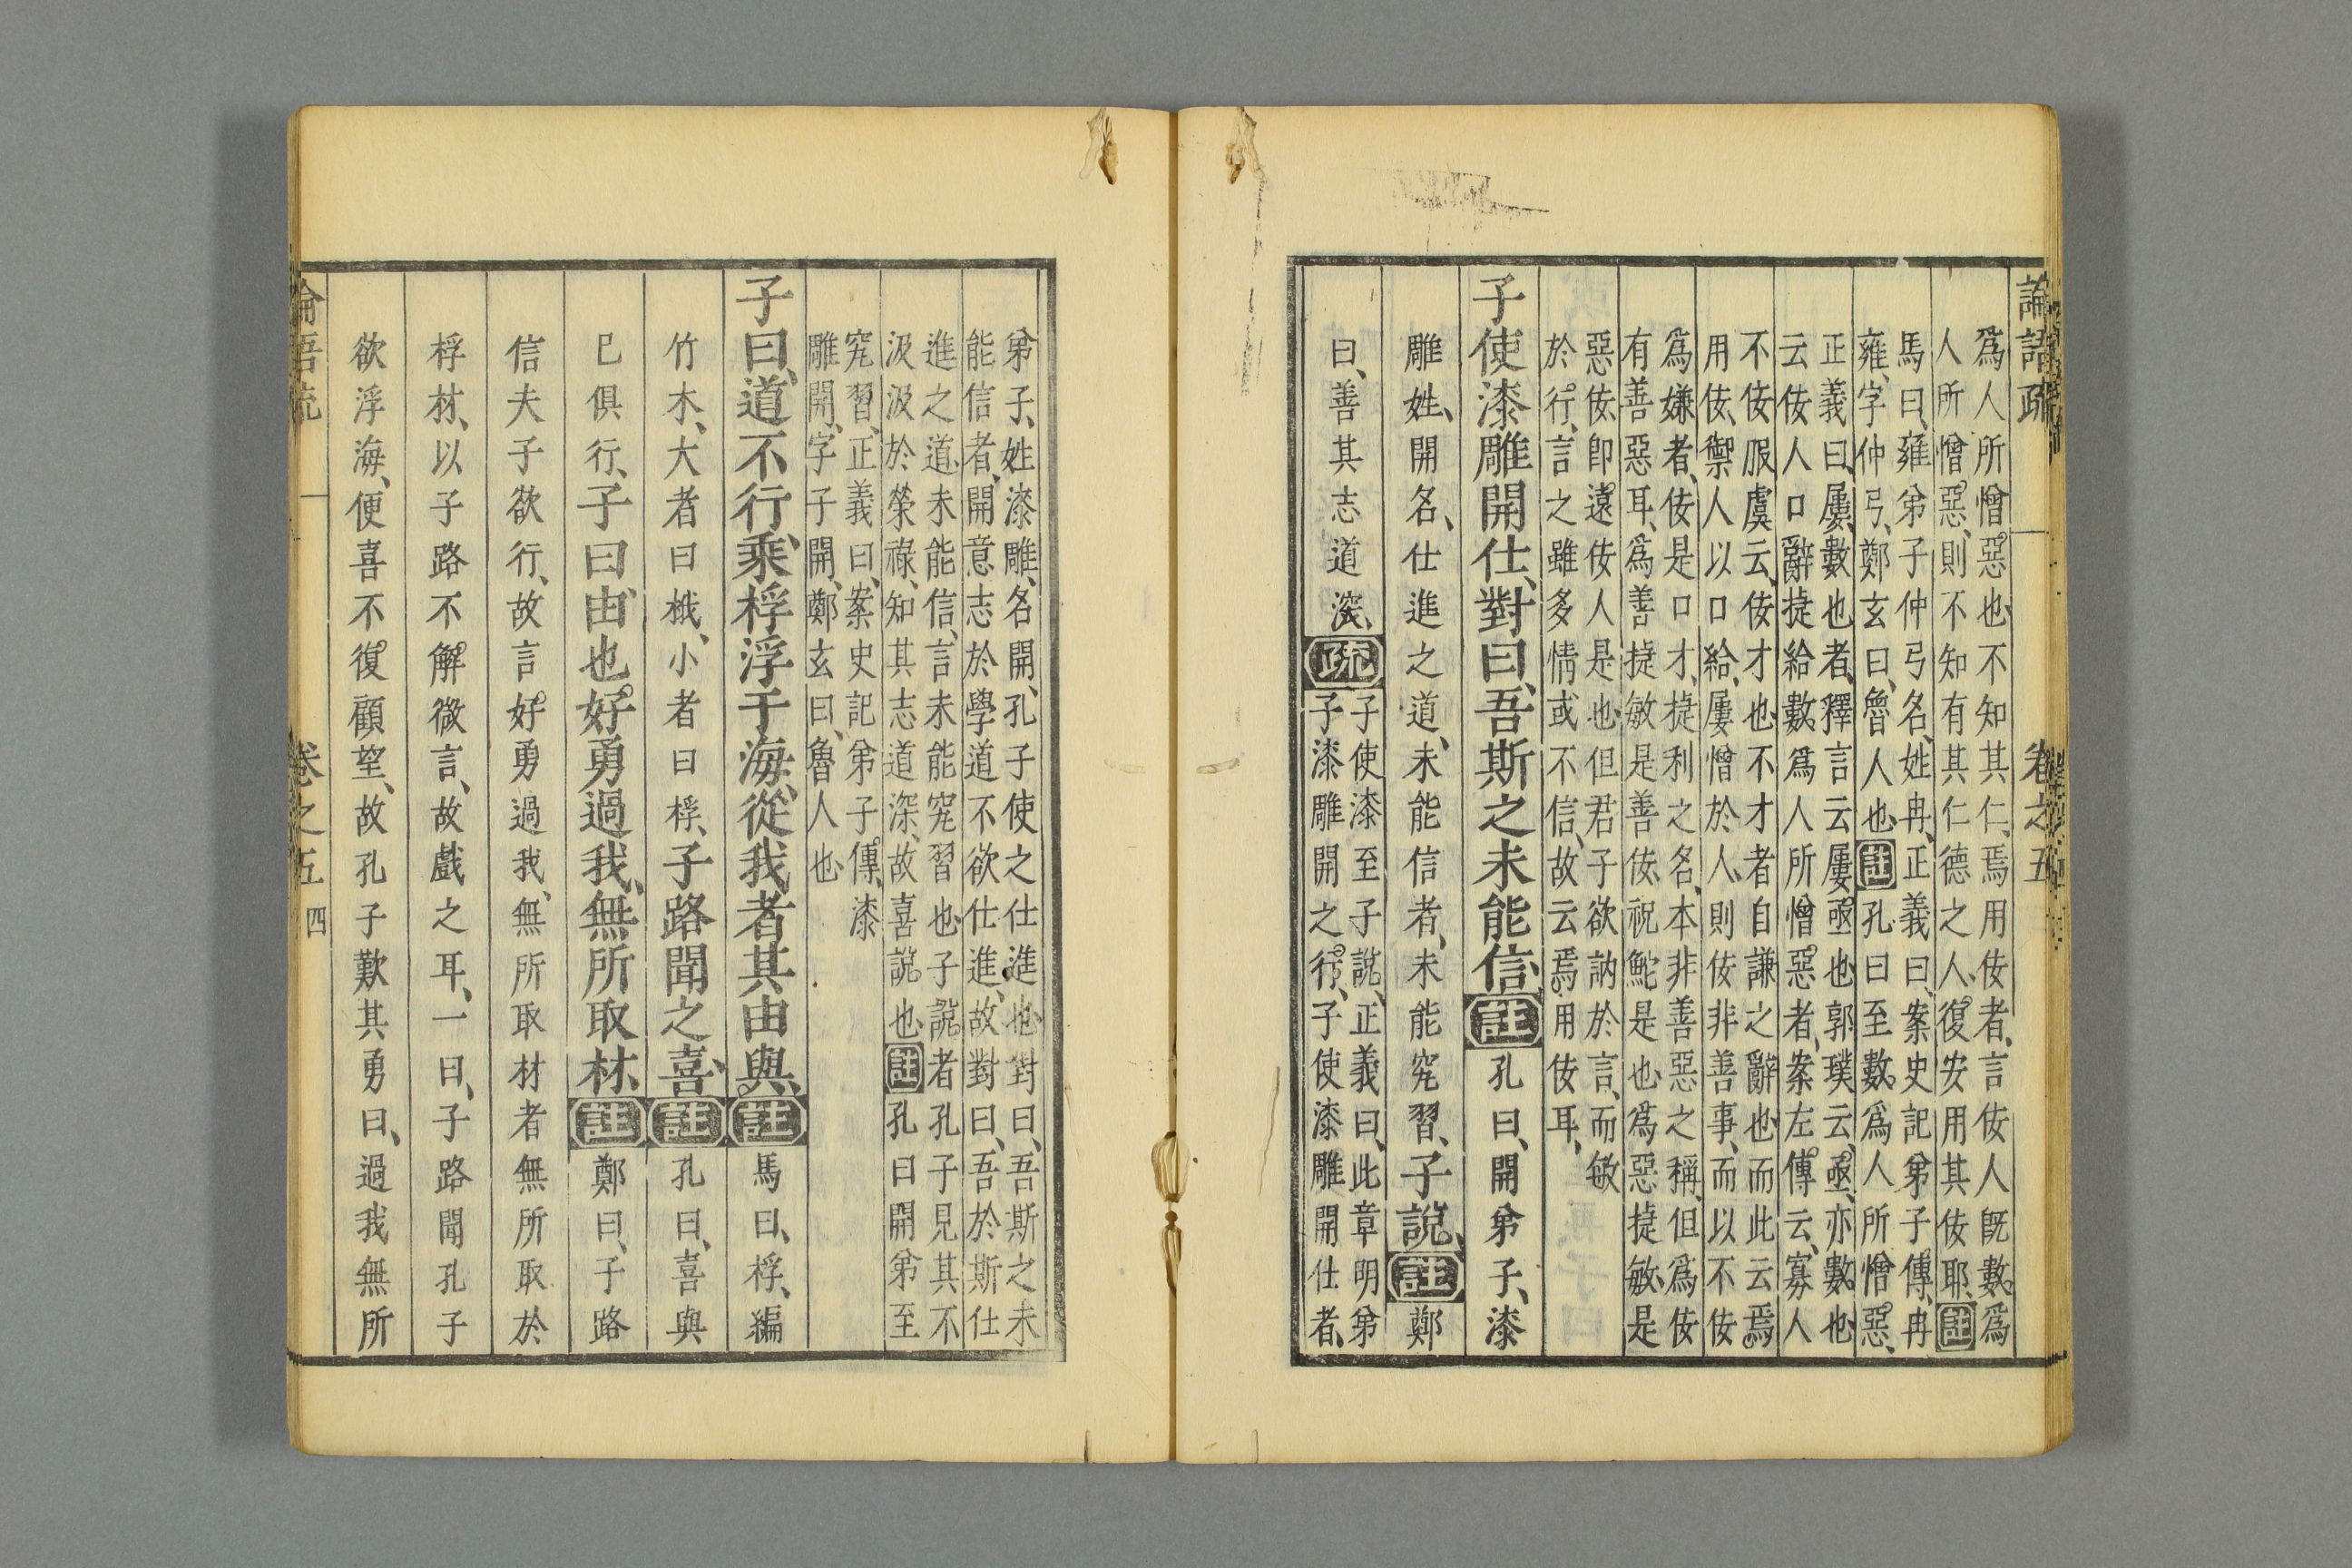 論語疏 卷之五
爲人所憎惡也不知其仁焉用佞者言佞人既數爲
人所憎惡則不知有其仁德之人復安用其佞耶註
馬曰雍弟子仲弓名姓冉正義曰案史記弟子傳冉
雍字仲弓鄭玄曰魯人也註孔曰至數爲人所憎惡
正義曰屢數也者釋言云屢亟也郭璞云亟亦數也
云佞人口辭捷給數爲人所憎惡者案左傳云寡人
不佞服虔云佞才也不才者自謙之辭也而此云焉
用佞禦人以口給屢憎於人則佞非善事而以不佞
爲嫌者佞是口才捷利之名本非善惡之稱但爲佞
有善惡耳爲善捷敏是善佞祝鮀是也爲惡捷敏是
惡佞卽遠佞人是也但君子欲訥於言而敏
於行言之雖多情或不信故云焉用佞耳
子使漆雕開仕對曰吾斯之未能信註孔曰開弟子漆
雕姓開名仕進之道未能信者未能究習子說註鄭
曰善其志道深疏
子使漆至子說正義曰此章明弟
子漆雕開之行子使漆雕開仕者
弟子姓漆雕名開孔子使之仕進也對曰吾斯之未
能信者開意志於學道不欲仕進故對曰吾於斯仕
進之道未能信言未能究習也子說者孔子見其不
汲汲於榮祿知其志道深故喜說也註孔曰開弟至
究習正義曰案史記弟子傳漆
雕開字子開鄭玄曰魯人也
子曰道不行乘桴浮于海從我者其由與註馬曰桴編
竹木大者曰栰小者曰桴子路聞之喜註孔曰喜與
已俱行子曰由也好勇過我無所取材註鄭曰子路
信夫子欲行故言好勇過我無所取材者無所取於
桴材以子路不解微言故戲之耳一曰子路聞孔子
欲浮海便喜不復顧望故孔子歎其勇曰過我無所
論語疏 卷之五 四